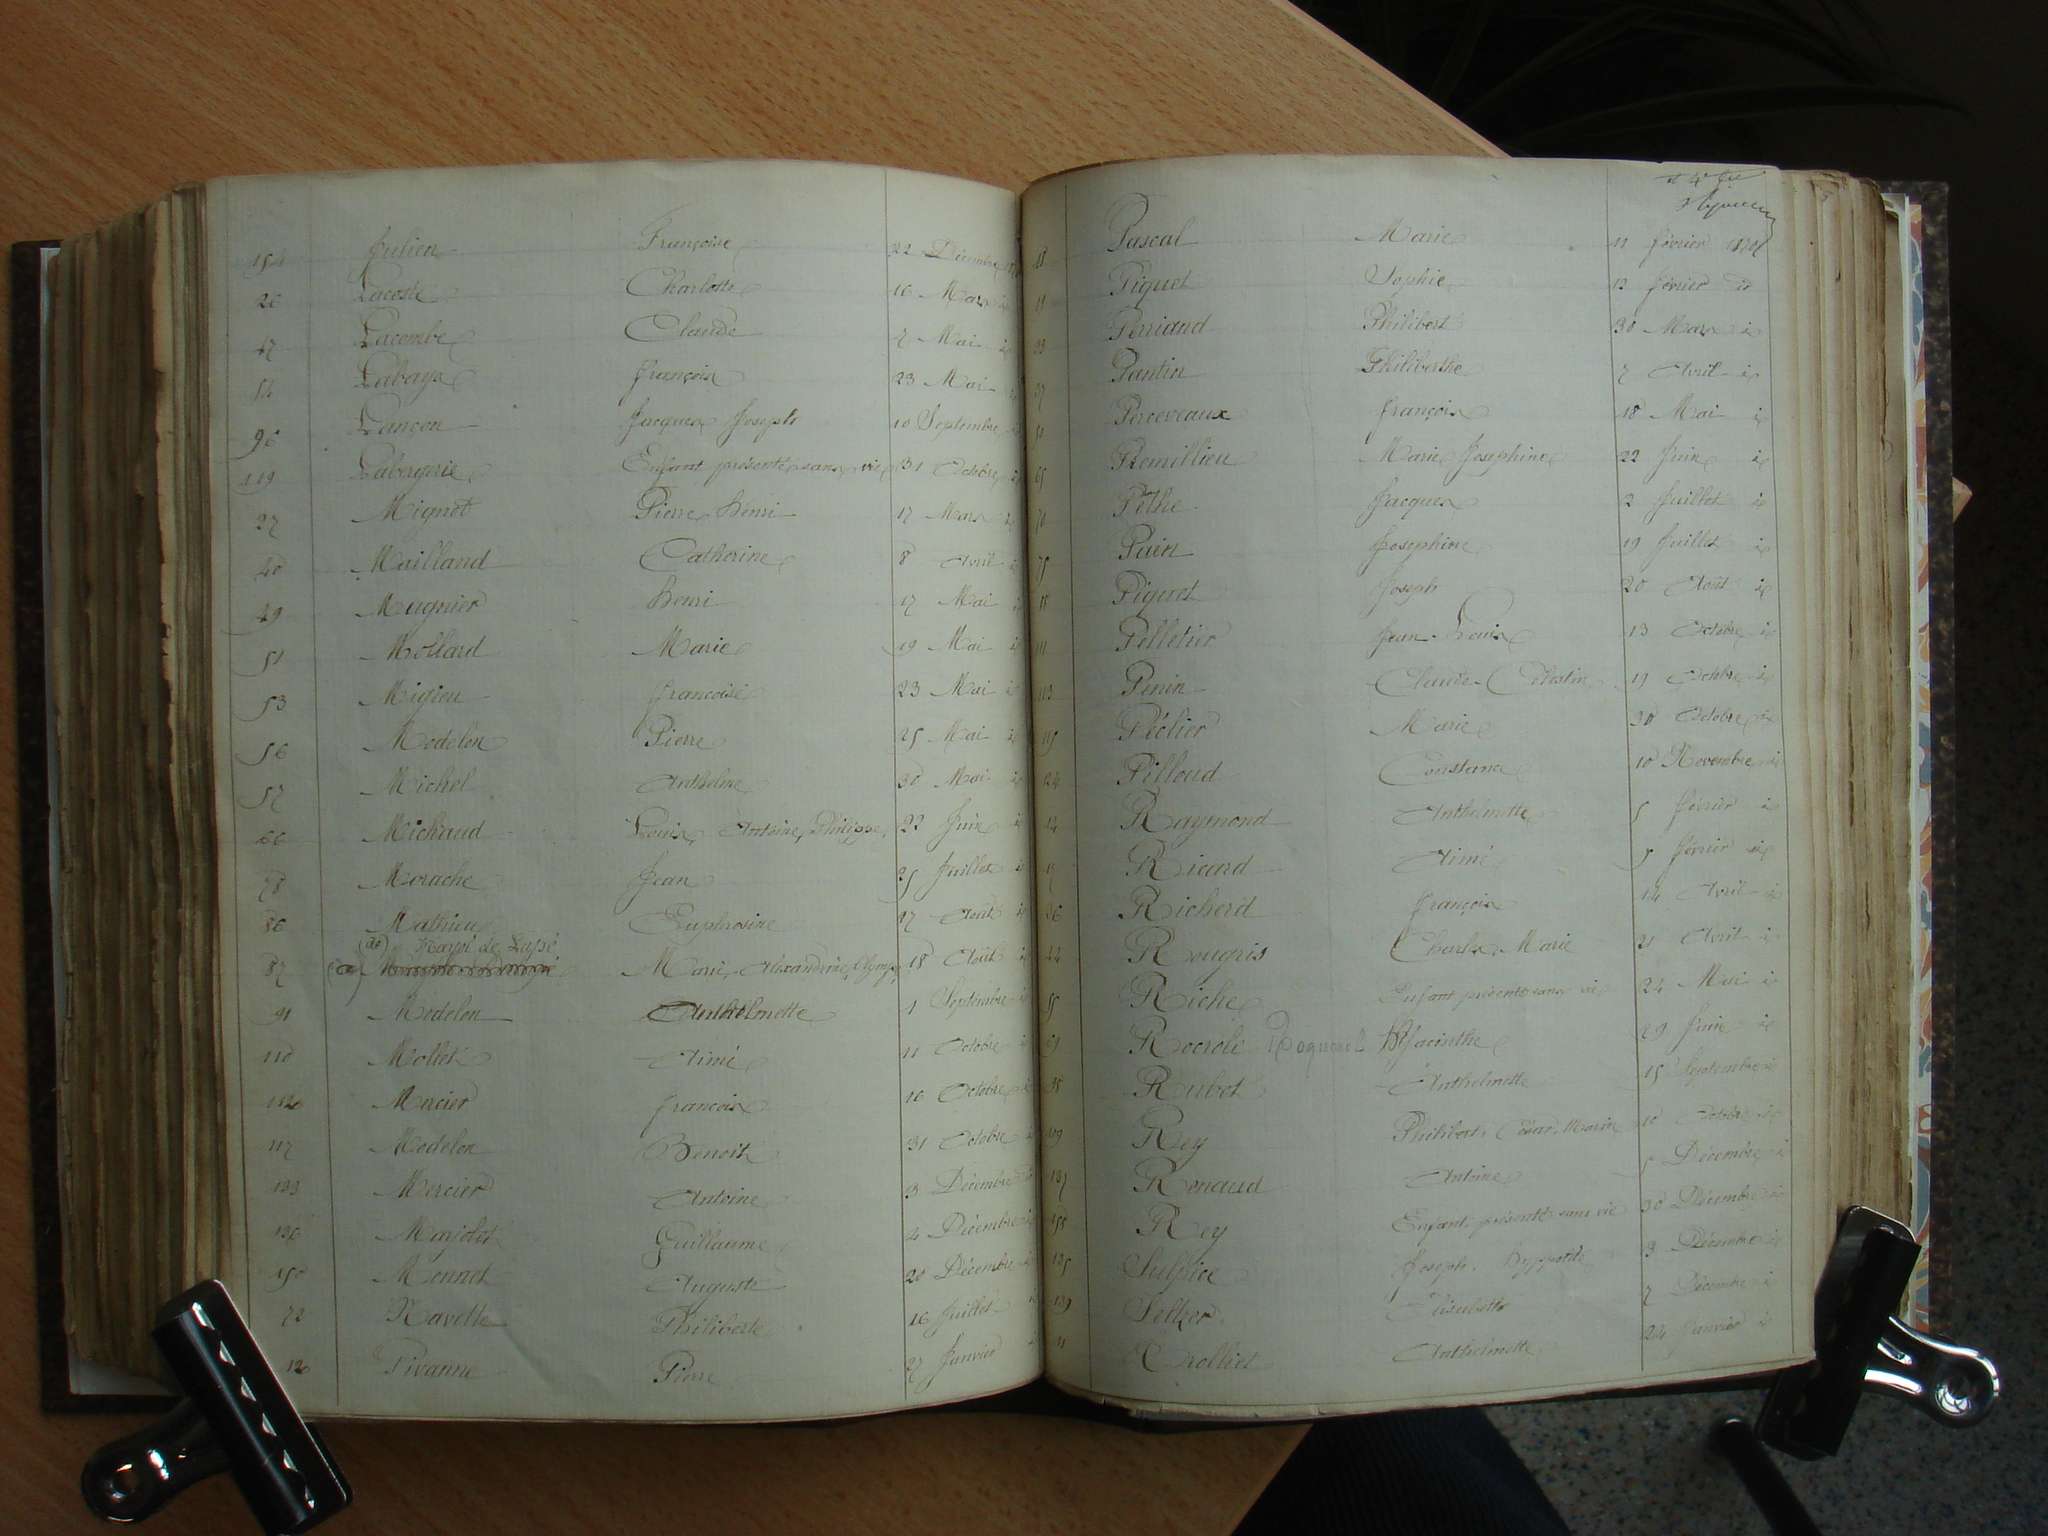 Julien Françoise 22 Décembre
26 Lacoste Charlotte 16 Mars id
47 Lacombe Claude 7 Mai id
54 Labaye François 23 Mai id
96 Lançon Jacques Joseph 10 Septembre id
119 Labergerie Enfant présenté sans vie 31 Octobre id
27 Mignot Pierre Henri 17 Mars id
40 Mailland Catherine 8 Avril id
49 Mugnier Henri 17 Mai id
51 Mollard Marie 19 Mai id
53 Migieu francoise 23 Mai id
56 Modelon Pierre 25 Mai id
57 Michel Anthelme 30 Mai id
66 Michaud Louis, Antoine, Philippe, 22 Juin id
78 Morache Jean 25 Juillet id
86 Mathieu Euphrosine 17 Août id
87 Marie, Alexandrine, Olympe 18 Août id
91 Modelon Anthelmette 1 Septembre id
110 Mollet Aimé 11 Octobre id
Mercier francois 16 Octobre id
117 Modelon Benoit 31 Octobre id
133 Mercier Antoine 3 Décembre id
136 Marjolet Guillaume 4 Décembre id
150 Monnet Auguste 20 Décembre id
72 Navette Philiberte 16 Juillet
Pivanne Pierre 27 Janvier
18 Pascal Marie 11 février
Piquet Sophie 12 février id
33 Perriand Philibert 30 Mars id
37 Pantin Philiberthe 7 Avril id
Perceveaux françois 18 Mai id
65 Premillieu Marie Josephine 22 Juin id
70 Pethe Jacques 2 Juillet id
75 Pain Josephine 19 Juillet id
Piquet Joseph 20 Août id
111 Pelletier Jean-Louis 13 Octobre id
113 Penin Claude-Célestin 19 Octobre id
115 Péclier Marie 30 Octobre id
124 Pilloud Constance 10 Novembre id
14 Raymond Anthelmette 5 février id
Ricard Aimé 5 février id
36 Richerd françois 14 Avril id
44 Rougris Charles, Marie 21 Avril id
55 Riche Enfant présenté sans vie 24 Mai id
Rocroli Hyacinthe 29 Juin id
Rubet Anthelmette 15 Septembre id
109 Rey Philibert, César, Marin 10 Octobre id
137 Renaud Antoine 5 Décembre id
155 Rey Enfant présenté sans vie 30 Décembre id
135 Sulpice Joseph, hyppolite 3 Décembre id
139 Seltzer Elisabeth 7 Décembre id
11 Trolliet Anthelmette 24 Janvier id